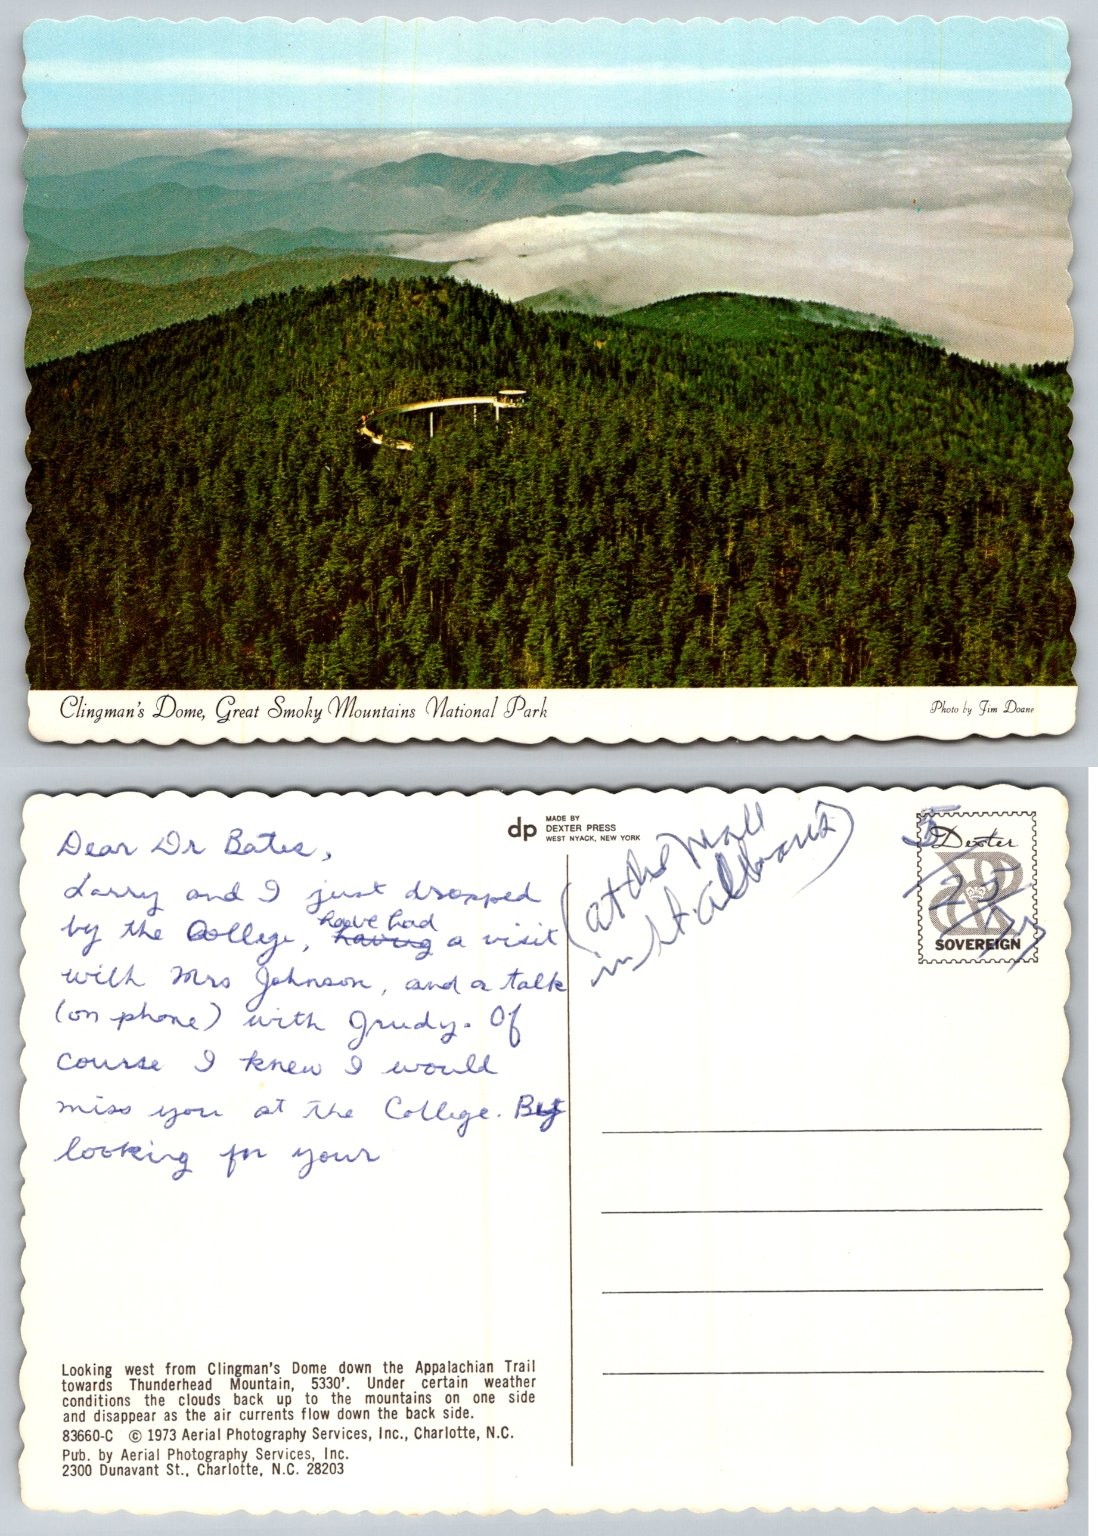 Clingman's Dome, Great Smoky Mountains National Park
Photo by Jim Doane
Dear Dr Bates,
Larry and I just dropped
by the College, have had having a visit
with Mrs Johnson, and a talk
(on phone) with Grudy. Of
course I knew I would
miss you at the College. But
looking for your
Looking west from Clingman's Dome down the Appalachian Trail
towards Thunderhead Mountain, 5330'. Under certain weather
conditions the clouds back up to the mountains on one side
and disappear as the air currents flow down the back side.
83660-C © 1973 Aerial Photography Services, Inc., Charlotte, N.C.
Pub. by Aerial Photography Services, Inc.
2300 Dunavant St., Charlotte, N.C. 28203
dp
MADE BY
DEXTER PRESS
WEST NYACK, NEW YORK
(at the Mall
in St. Albans)
5/25/
Dexter
SOVEREIGN